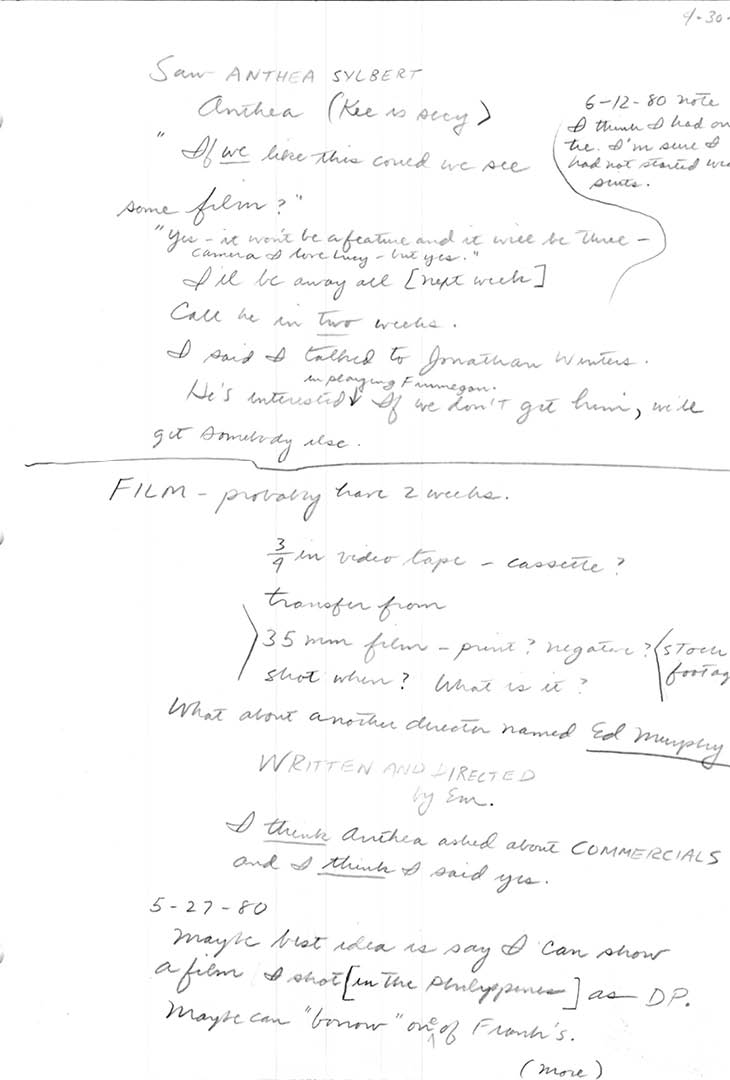 4-30-
Saw ANTHEA SYLBERT
Anthea (Kee is secy)
6-12-80 note
I think I had on
tie. I'm sure I
had not started wea
suits.
"If we like this could we see
some film?"
"Yes - it won't be a feature and it will be three -
camera I love Lucy - but yes."
I'll be away all [next week]
Call me in two weeks.
I said I talked to Jonathan Winters.
in playing Finnegan.
He's interested ↓ If we don't get him, we'll
get somebody else.
FILM - probably have 2 weeks.
3/4 in video tape - cassette?
transfer from
35 mm film - print? negative? (stock
footag
shot when? What is it?
What about another director named Ed Murphy
WRITTEN AND DIRECTED
by Em.
I think Anthea asked about COMMERCIALS
and I think I said yes.
5-27-80
Maybe best idea is say I can show
a film I shot [in the Philippines] as DP.
Maybe can "borrow" one of Frank's.
(more)